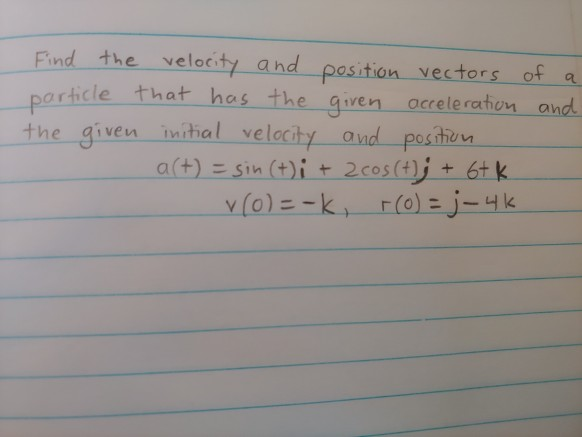 Find the velocity and position vectors of a
particle that has the given acceleration and
the given initial velocity and position
a(t) = sin(t)i + 2cos(t)j + 6t k
v(0) = -k, r(0) = j - 4k